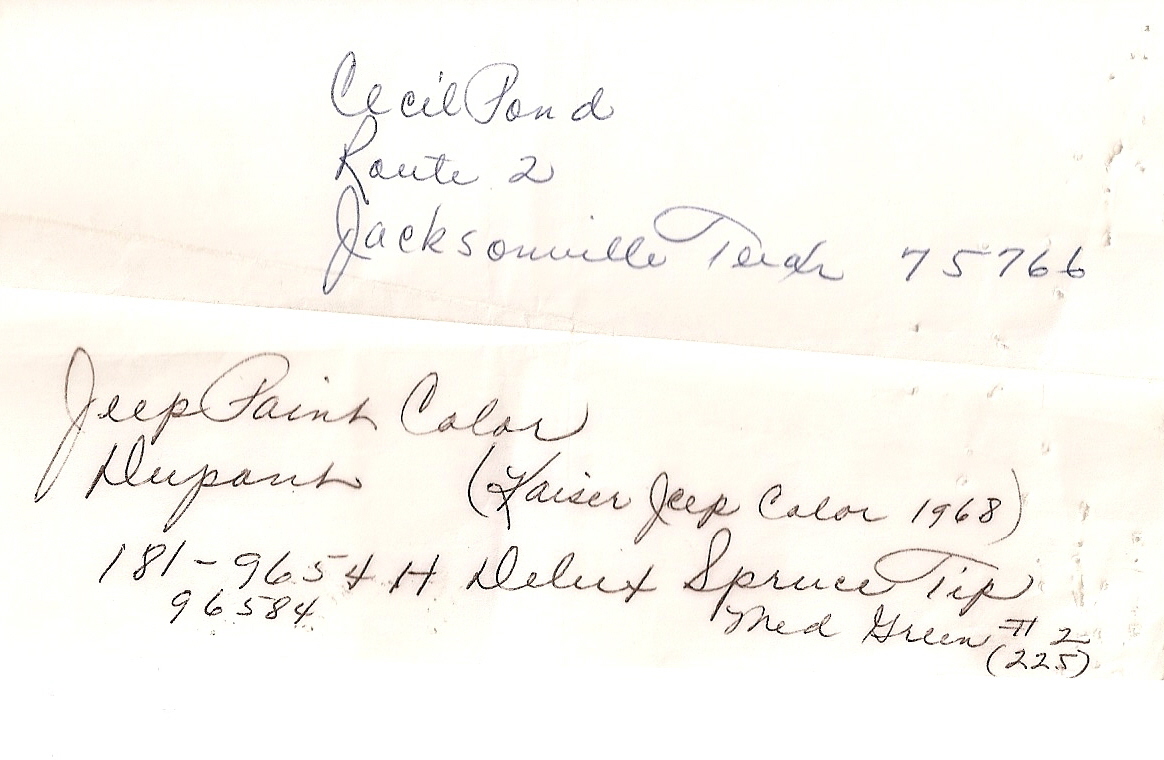 Cecil Pond
Route 2
Jacksonville Texas 75766
Jeep Paint Color
Dupont (Kaiser Jeep Color 1968)
181-9654 H Delux Spruce Tip
96584 Med Green #2
(225)